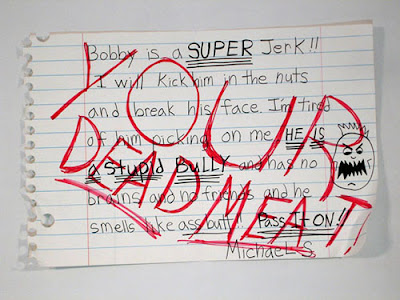 Bobby is a SUPER Jerk!!
I will Kick him in the nuts
and break his face. I'm tired
of him picking on me HE IS
a Stupid BULLY and has no
brains and no friends and he
smells like ass butt! Pass It ON!!
Michael S.
YOUR
DEAD MEAT!